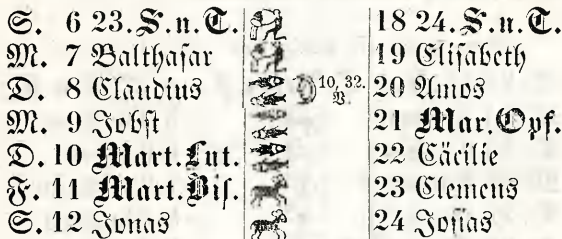 S. 6 23. S. n. T. 18 24. S. n. T.
M. 7 Balthasar 19 Elisabeth
D. 8 Claudius 10, 32. V. 20 Amos
M. 9 Jobst 21 Mar. Opf.
D. 10 Mart. Lut. 22 Cäcilie
F. 11 Mart. Bis. 23 Clemens
S. 12 Jonas 24 Josias